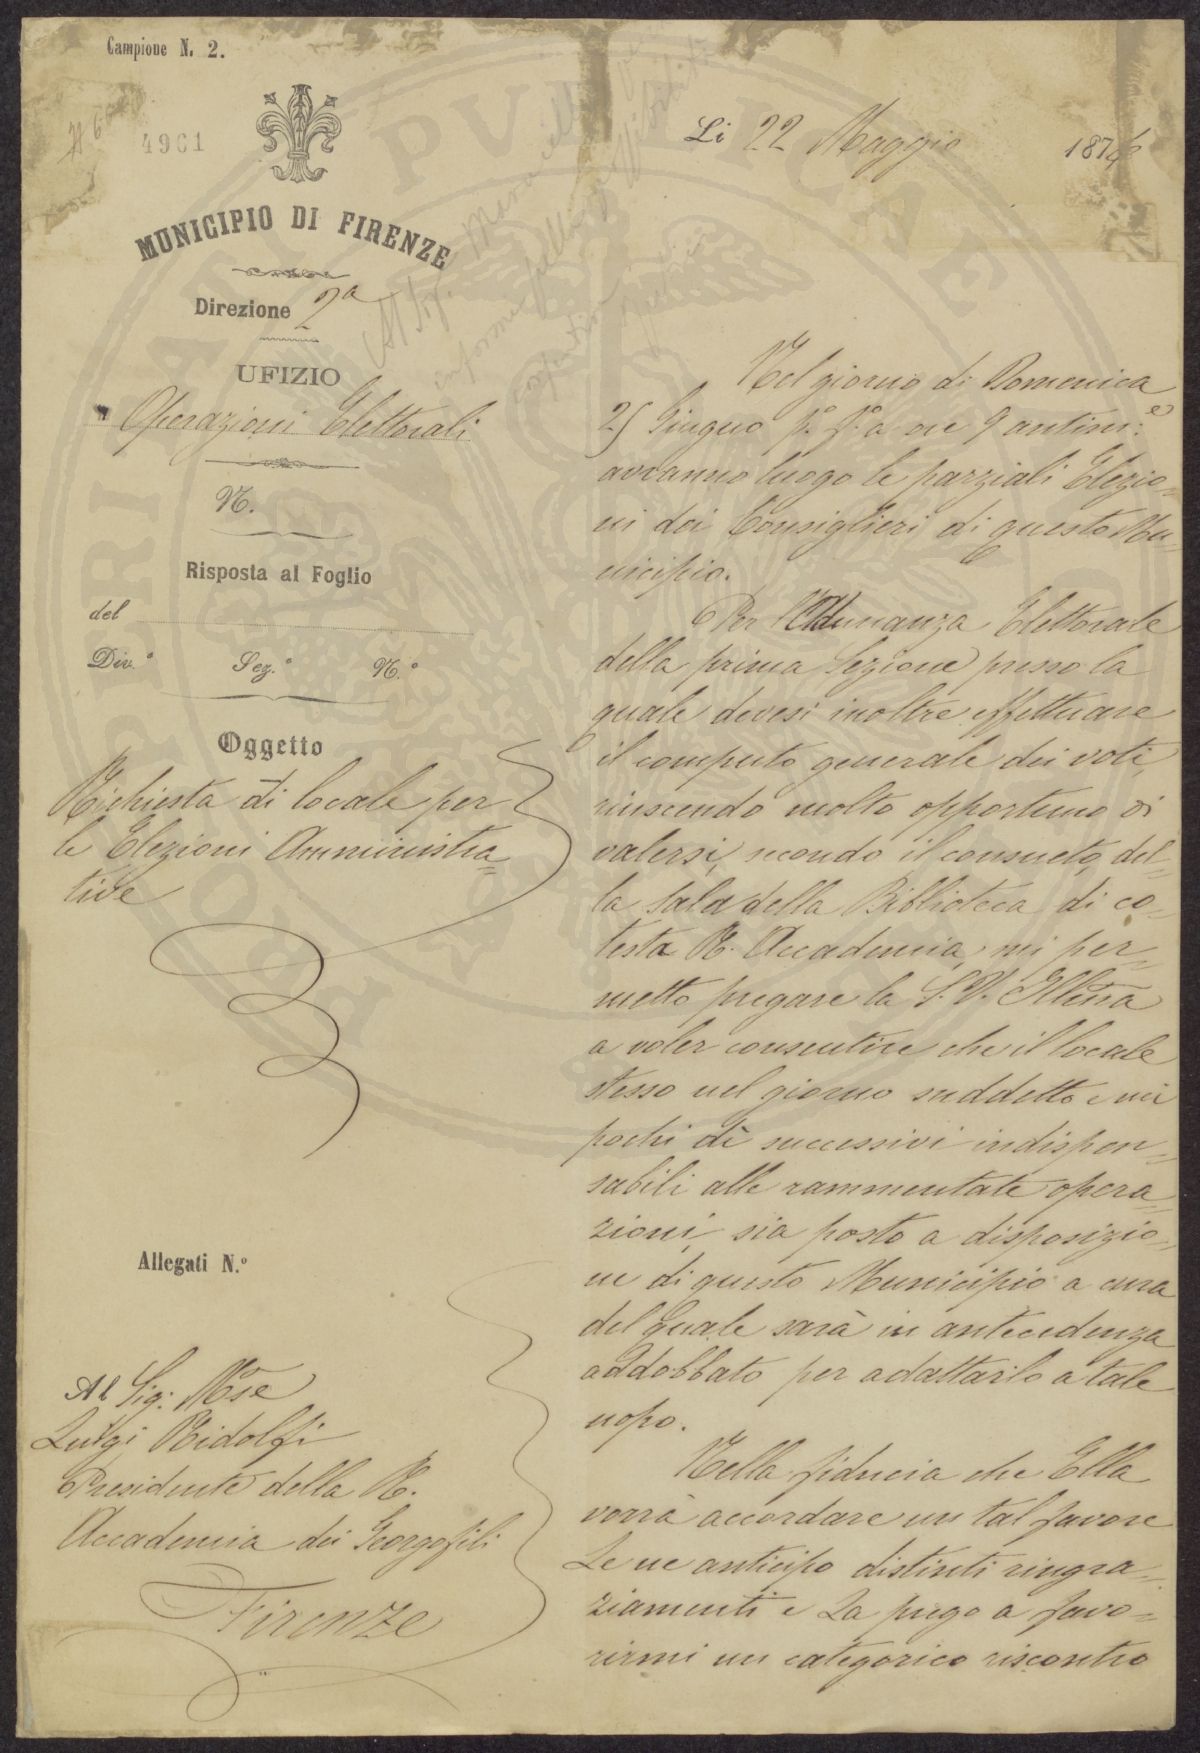 Campione N. 2.
4961
Li 22 Maggio 1876
MUNICIPIO DI FIRENZE
Direzione 2ª
UFIZIO
Operazioni Elettorali
N.
Risposta al Foglio
del
Div.º Sez.º N.º
Oggetto
Richiesta di locale per
le Elezioni Amministra-
tive
Allegati N.º
Al Sig: Mse
Luigi Ridolfi
Presidente della R.
Accademia dei Georgofili
Firenze
Nel giorno di Domenica
25 Giugno p. f. a ore 9 antim:e
avranno luogo le parziali Elezio-
ni dei Consiglieri di questo Mu-
nicipio.
Per l'Adunanza Elettorale
della prima Sezione presso la
quale devesi inoltre effettuare
il computo generale dei voti,
riuscendo molto opportuno di
valersi, secondo il consueto, del-
la sala della Biblioteca di co-
testa R. Accademia, mi per-
metto pregare la S. V. Illma
a voler consentire che il locale
stesso nel giorno suddetto e nei
pochi dì successivi indispen-
sabili alle rammentate opera-
zioni, sia posto a disposizio-
ne di questo Municipio a cura
del quale sarà in antecedenza
addobbato per adattarlo a tale
uopo.
Nella fiducia che Ella
vorrà accordare un tal favore
Le ne anticipo distinti ringra-
ziamenti e La prego a favo-
rirmi un categorico riscontro